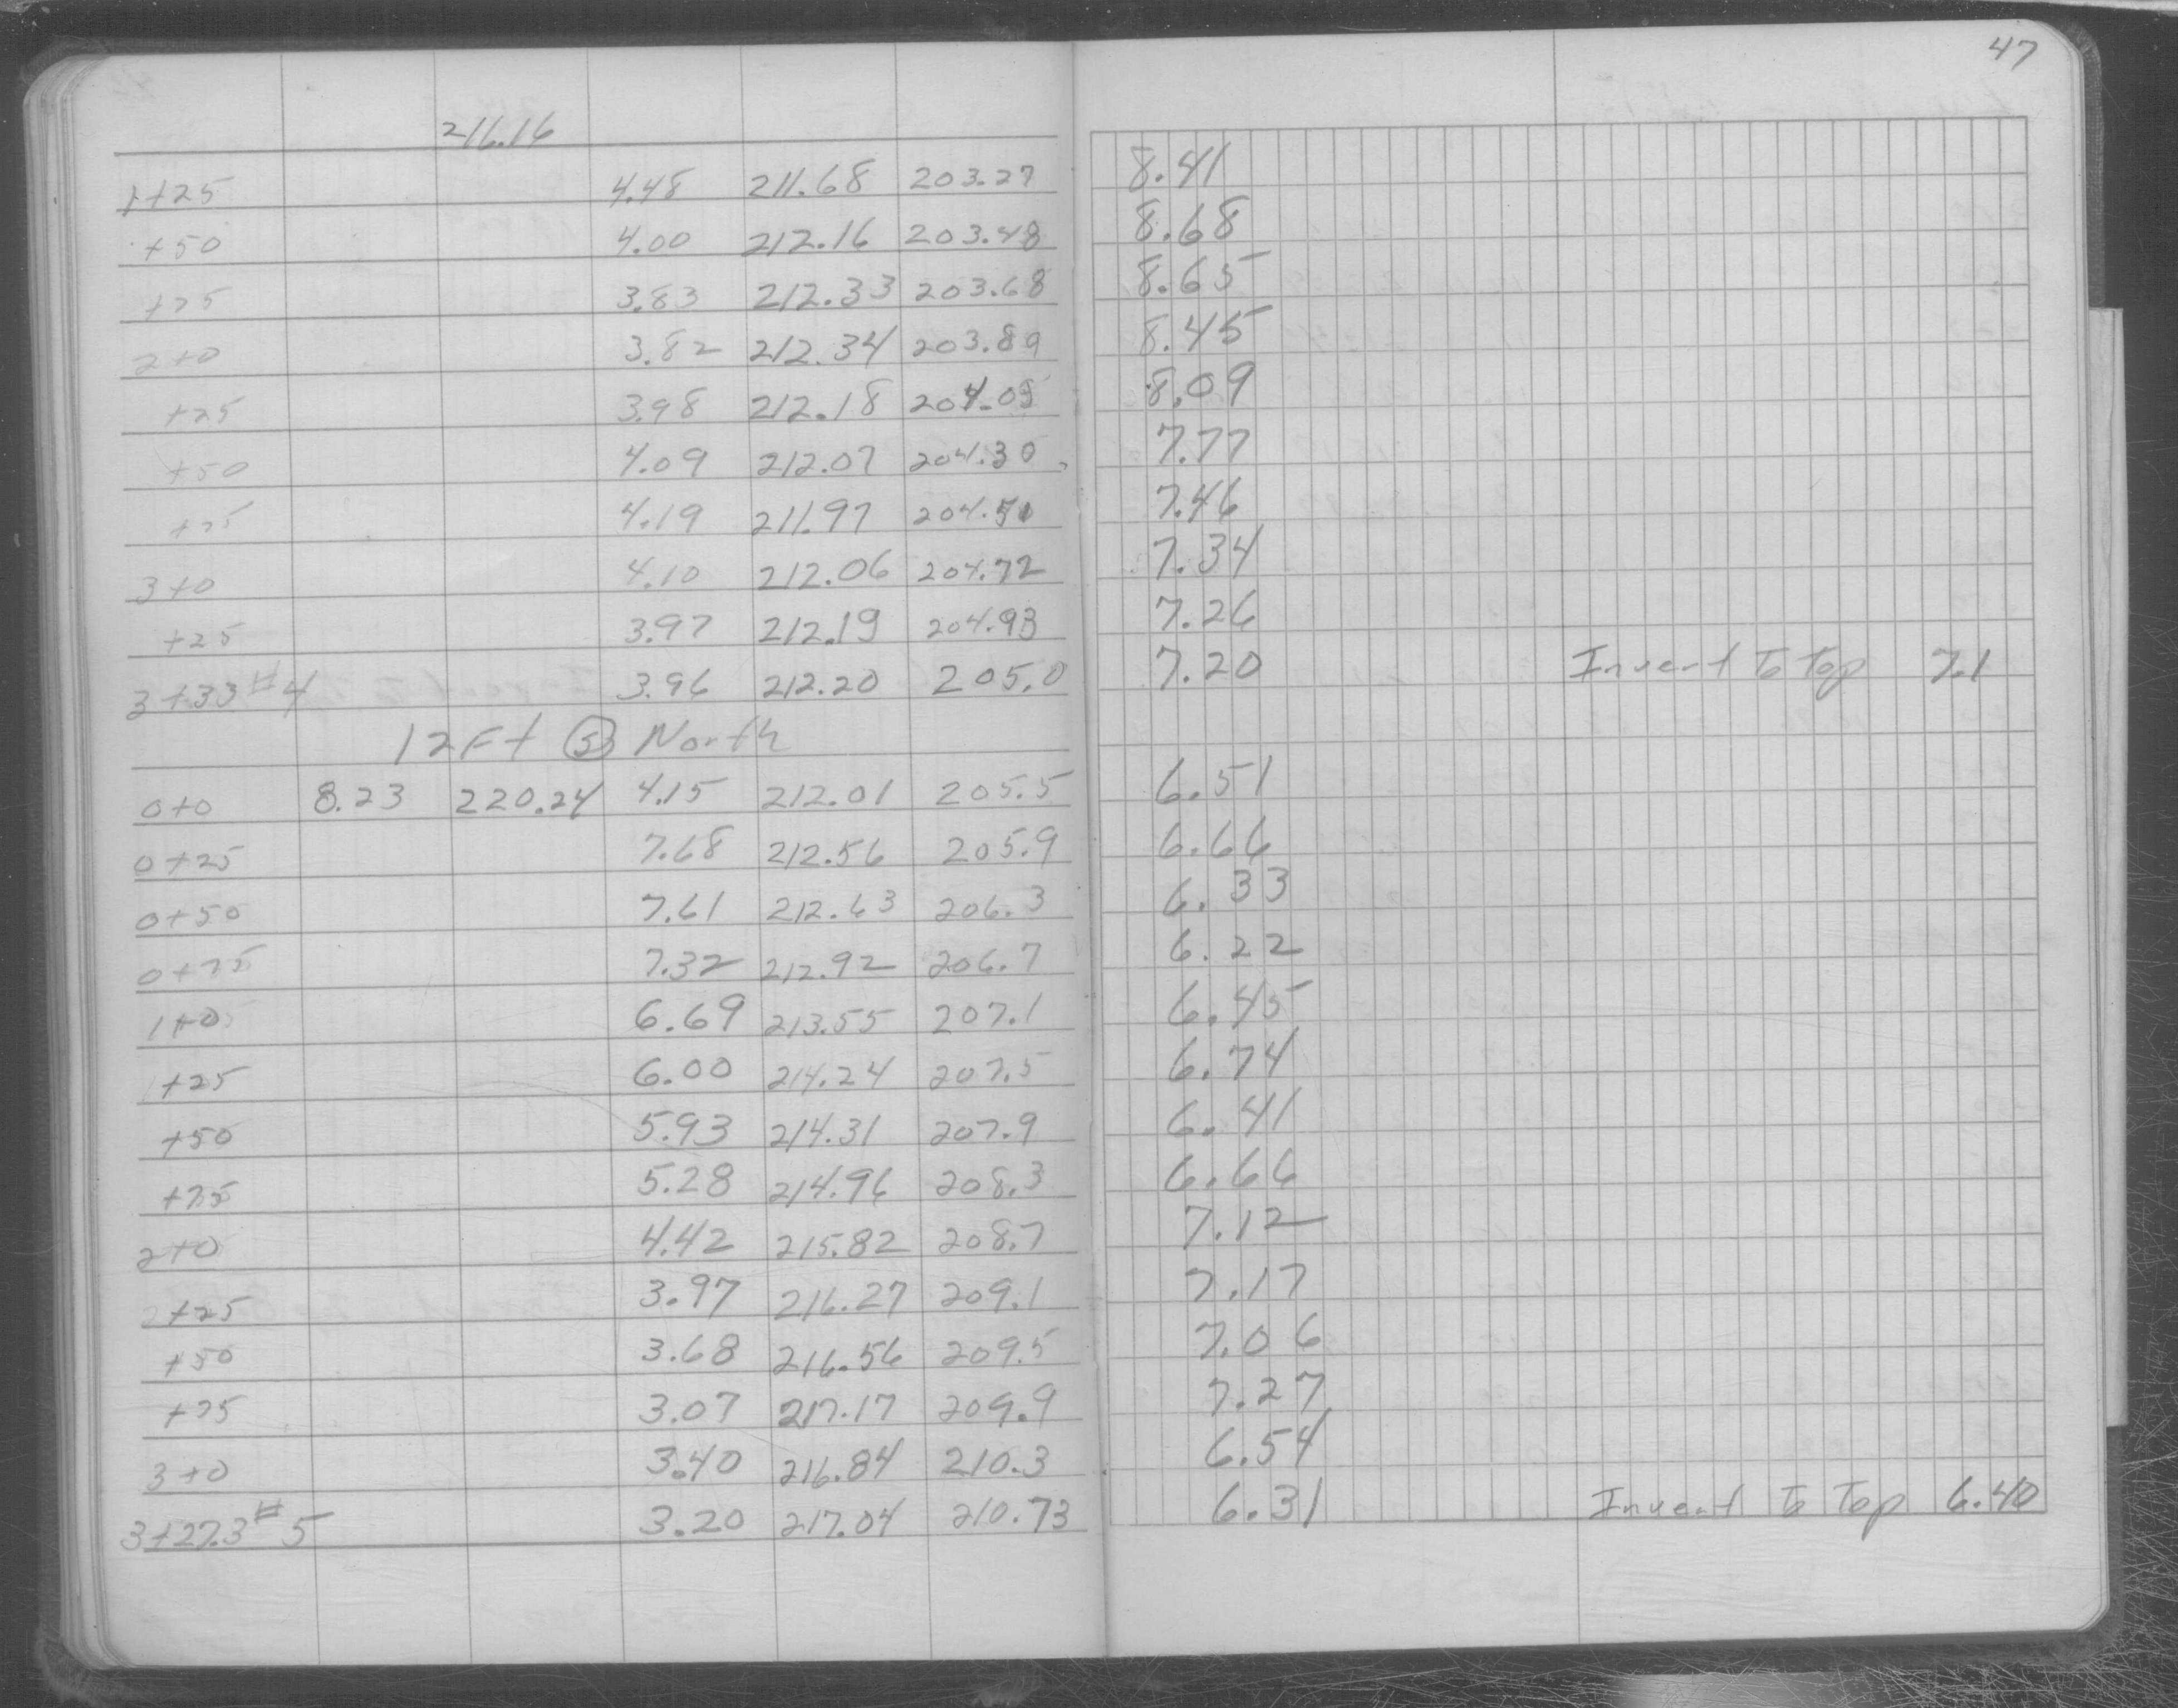 47
216.16
1+25 4.48 211.68 203.27 8.41
+50 4.00 212.16 203.48 8.68
+75 3.83 212.33 203.68 8.65
2+0 3.82 212.34 203.89 8.45
+25 3.98 212.18 204.09 8.09
+50 4.09 212.07 204.30 7.77
+75 4.19 211.97 204.51 7.46
3+0 4.10 212.06 204.72 7.34
+25 3.97 212.19 204.93 7.26
3+33 #4 3.96 212.20 205.0 7.20 Invert To Top 7.1
12 Ft (5) North
0+0 8.23 220.24 4.15 212.01 205.5 6.51
0+25 7.68 212.56 205.9 6.66
0+50 7.61 212.63 206.3 6.33
0+75 7.32 212.92 206.7 6.22
1+0 6.69 213.55 207.1 6.45
1+25 6.00 214.24 207.5 6.74
+50 5.93 214.31 207.9 6.41
+75 5.28 214.96 208.3 6.66
2+0 4.42 215.82 208.7 7.12
2+25 3.97 216.27 209.1 7.17
+50 3.68 216.56 209.5 7.06
+75 3.07 217.17 209.9 7.27
3+0 3.40 216.84 210.3 6.54
3+27.3 #5 3.20 217.04 210.73 6.31 Invert To Top 6.40